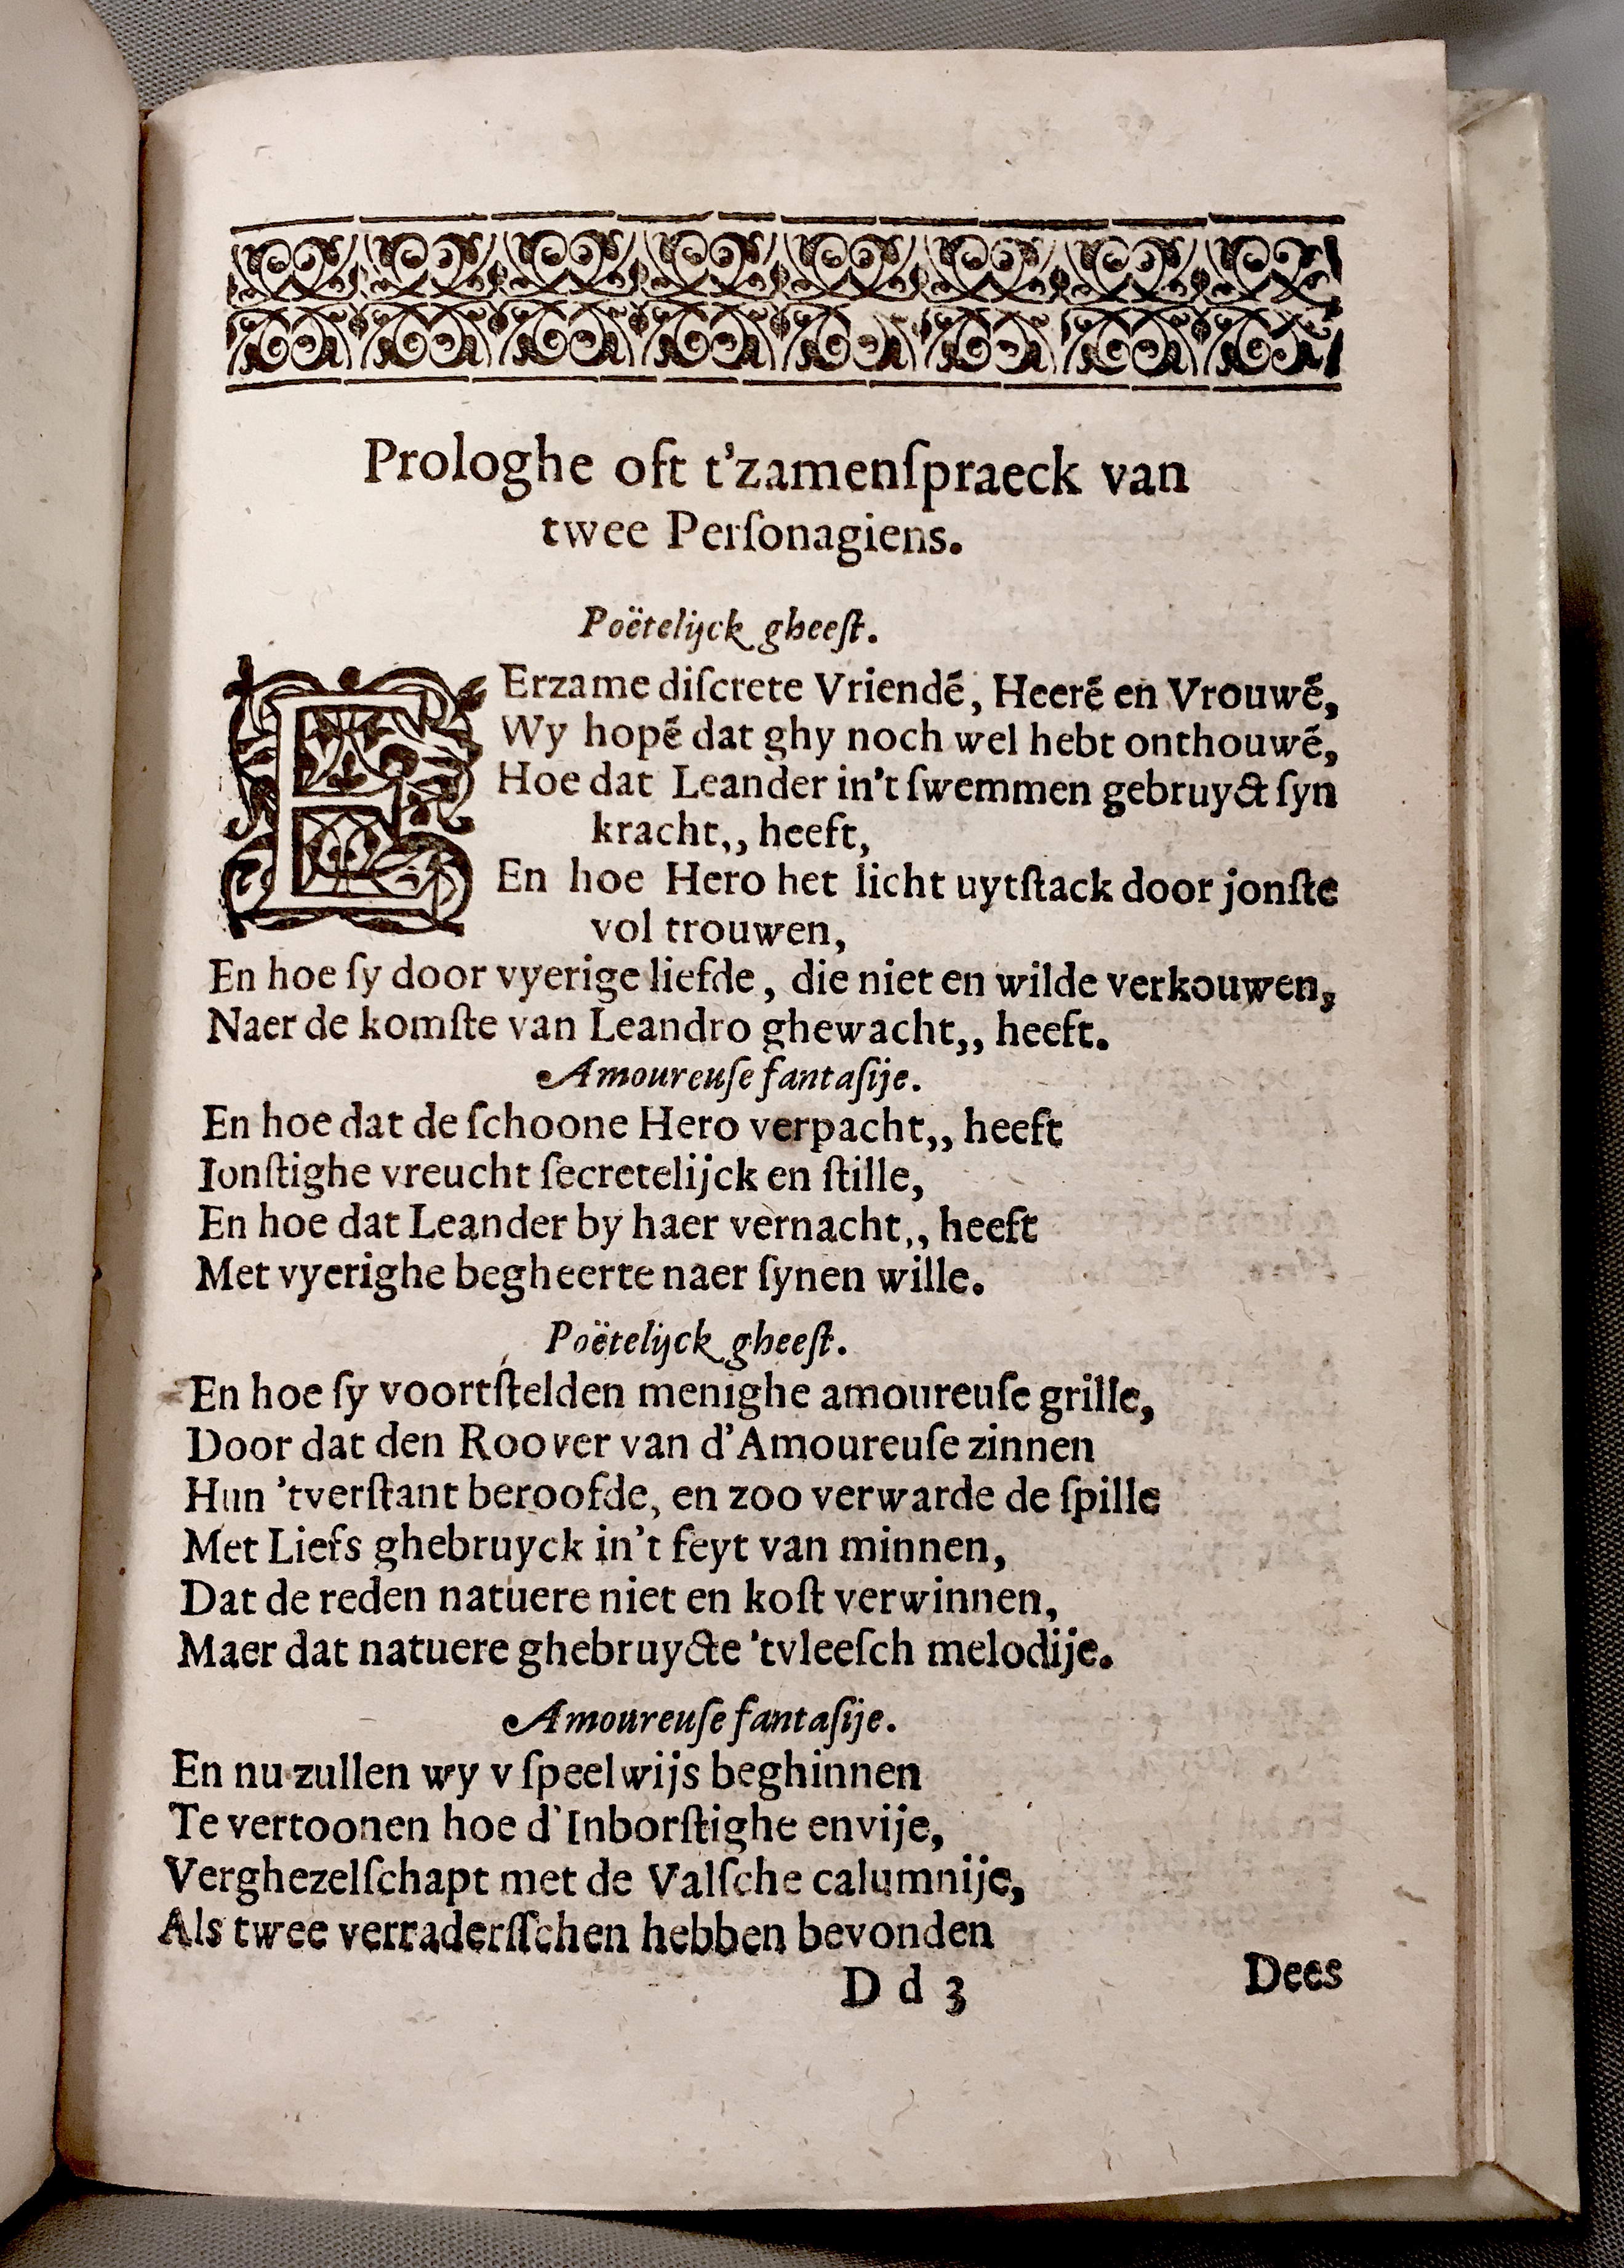 Prologhe oft t'zamenſpraeck van
twee Perſonagiens.
Poëtelijck gheeſt.
EErzame diſcrete Vriendẽ, Heerẽ en Vrouwẽ,
Wy hopẽ dat ghy noch wel hebt onthouwẽ,
Hoe dat Leander in't ſwemmen gebruyct ſyn
kracht,, heeft,
En hoe Hero het licht uytſtack door jonſte
vol trouwen,
En hoe ſy door vyerige liefde, die niet en wilde verkouwen,
Naer de komſte van Leandro ghewacht,, heeft.
Amoureuſe fantaſije.
En hoe dat de ſchoone Hero verpacht,, heeft
Ionſtighe vreucht ſecretelijck en ſtille,
En hoe dat Leander by haer vernacht,, heeft
Met vyerighe begheerte naer ſynen wille.
Poëtelijck gheeſt.
En hoe ſy voortſtelden menighe amoureuſe grille,
Door dat den Roover van d'Amoureuſe zinnen
Hun 'tverſtant beroofde, en zoo verwarde de ſpille
Met Liefs ghebruyck in't feyt van minnen,
Dat de reden natuere niet en koſt verwinnen,
Maer dat natuere ghebruycte 'tvleeſch melodije.
Amoureuſe fantaſije.
En nu zullen wy v ſpeelwijs beghinnen
Te vertoonen hoe d'Inborſtighe envije,
Verghezelſchapt met de Valſche calumnije,
Als twee verraderſſchen hebben bevonden
D d 3
Dees